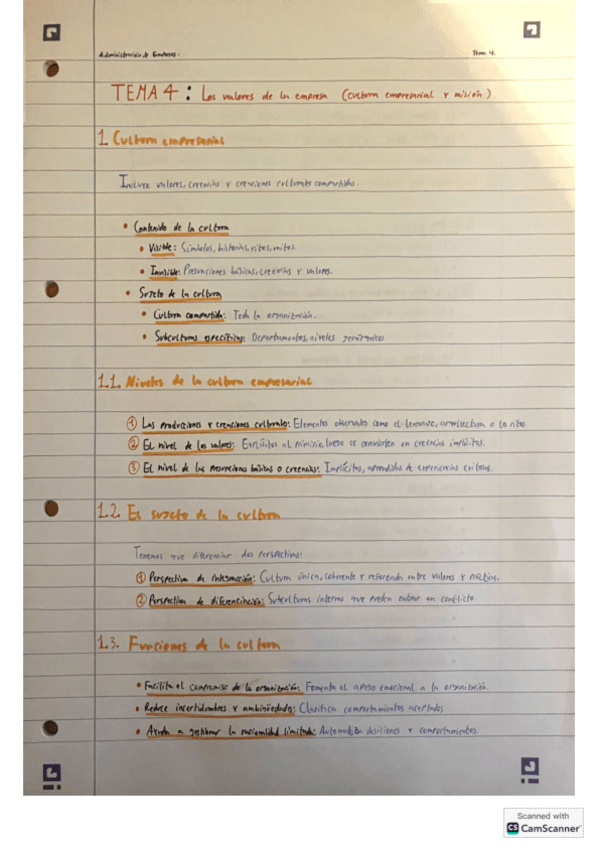 Administración de Empresas.
Tema 4.
TEMA 4: Los valores de la empresa (Cultura empresarial y misión)
1. Cultura empresarial
Incluye valores, creencias y creaciones culturales compartidas.
• Contenido de la cultura
• Visible: Símbolos, historias, ritos, mitos.
• Invisible: Presunciones básicas, creencias y valores.
• Sujeto de la cultura
• Cultura compartida: Toda la organización.
• Subculturas específicas: Departamentos, niveles jerárquicos
1.1. Niveles de la cultura empresarial
① Las producciones y creaciones culturales: Elementos observables como el lenguaje, arquitectura o los ritos
② El nivel de los valores: Explícitos al principio, luego se convierten en creencias implícitas.
③ El nivel de las presunciones básicas o creencias: Implícitas, aprendidas de experiencias exitosas.
1.2. El sujeto de la cultura
Tenemos que diferenciar dos perspectivas:
① Perspectiva de integración: Cultura única, coherente y reforzada entre valores y prácticas.
② Perspectiva de diferenciación: Subculturas internas que pueden entrar en conflicto
1.3. Funciones de la cultura
• Facilita el compromiso de la organización: Fomenta el apego emocional a la organización.
• Reduce incertidumbres y ambigüedades: Clarifica comportamientos aceptados
• Ayuda a gestionar la racionalidad limitada: Automatiza decisiones y comportamientos.
Scanned with
CS CamScanner